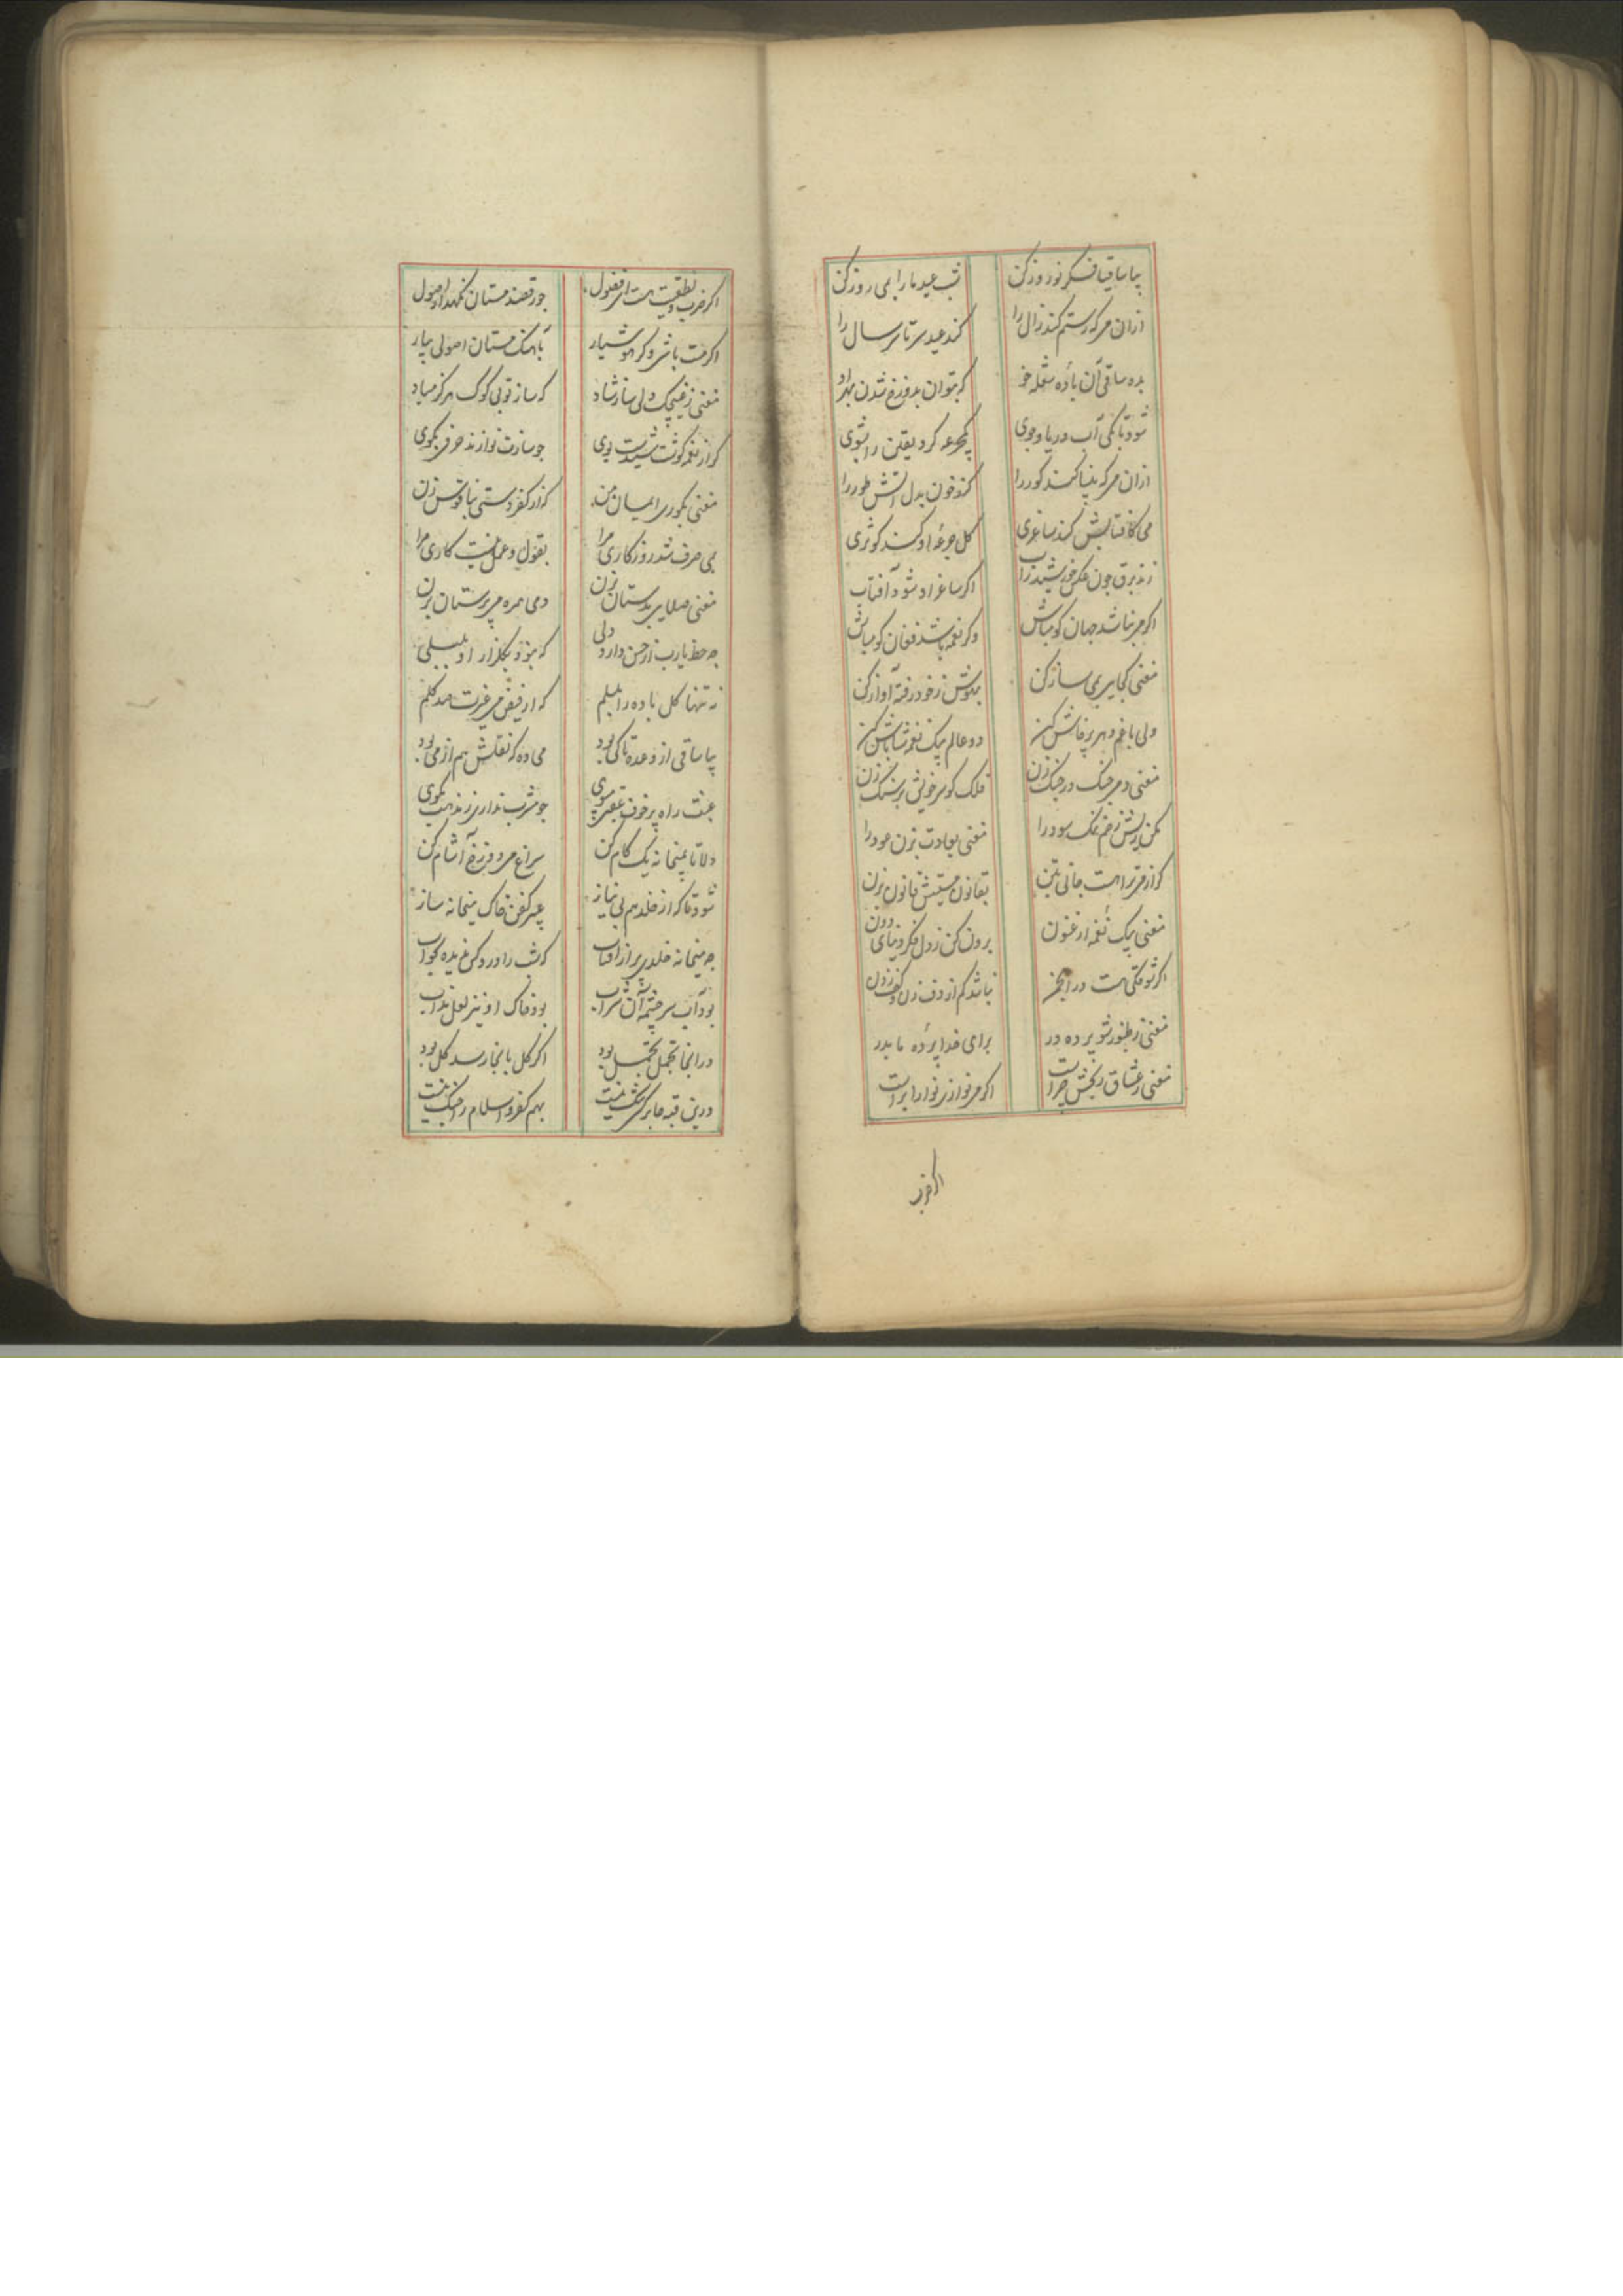 بیا ساقیا فکر نوروز کن شب عید ما را بمی روز کن
ازان می که رستم کند زال را کند عید سرتاسر سال را
بده ساقی آن بادهٔ شعله خو که بتوان بدوزخ شدن بهر او
شود تا بکی آب دریا وجوی بیکجرعه کرد یقین را بشوی
ازان می که بینا کند کور را کند خون بدل آتش طور را
می کافتابش کند ساغری کل جرعهٔ او کند کوثری
زند برق چون عکس خورشید زاب اکر ساغر او شود آفتاب
اکر می نباشد جهان کو مباش وکر نغمه باشد فغان کو مباش
مغنی کجایی بمی ساز کن بیهوش ز خود رفته آواز کن
ولی با غم دهر پرخاش کن دو عالم بیک نغمه شاباش کن
مغنی دمی چنک در چنک زن فلک کو سر خویش بر سنک زن
نمک سود را مغنی بعادت بزن عود را
کرت از می تراهست جانی بتن بقانون مستیش قانون بزن
مغنی بیک نغمه ارغنون برون کن ز دل فکر دنیای دون
اکر شوقکی هست در انجمن نباشد کم از دف زدن کف زدن
مغنی ز طنبور شو پرده در برای خدا پردهٔ ما بدر
مغنی ز عشاق رنجش چراست اکر می نوازی نوا را براست
اکر ضرب
اکر ضرب ونطقیت هست ای فضول چو رقصند مستان نکهدار اصول
اکر مست باشی وکر هوشیار بآهنک مستان اصولی بیار
مغنی ز غیچک دلی ساز شاد که ساز تو بی کوک هرکز مباد
کر از نغمه کوشت شنیدست بوی چو سازت نوازند حرفی مکوی
مغنی بکوری ایمان من که از کفر دستی بناقوس زن
بمی صرف شد روزکاری مرا بقول وعمل نیست کاری مرا
مغنی صلایی بدستان بزن دمی همره می پرستان بزن
چه حظ یارب از حسن دارد دلی که نبود بکلزار او بلبلی
نه تنها کل باده را بلبلم که از فیض می غیرت صد کلم
بیا ساقی از وعده تا کی بود می ده که نقلش هم از می بود
عبث راه پرخوف عقبی مپوی چو مشرب نداری ز مذهب مکوی
دلا تا بمیخانه یک کام کن سراغ می دوزخ آشام کن
شود تا که از خلد هم بی نیاز عبیر کفن خاک میخانه ساز
چه میخانه خلدی پر از آفتاب که شب را درو کس ندیده بخواب
بود آب سرچشمه آن شراب بود خاک او نیز لعل مذاب
در آنجا تجمل تحمل بود اکر کل بآنجا رسد کل بود
درین قبه جا بر کسی تنک نیست بهم کفر واسلام را جنک نیست